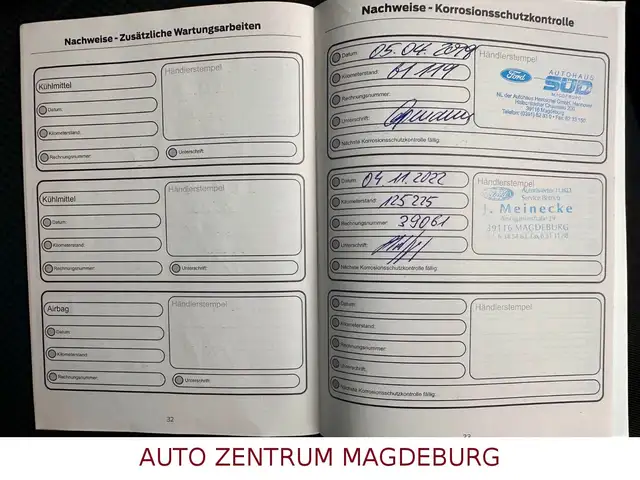 Nachweise - Zusätzliche Wartungsarbeiten
Kühlmittel
Händlerstempel
Datum:
Kilometerstand:
Rechnungsnummer:
Unterschrift:
Kühlmittel
Händlerstempel
Datum:
Kilometerstand:
Rechnungsnummer:
Unterschrift:
Airbag
Händlerstempel
Datum:
Kilometerstand:
Rechnungsnummer:
Unterschrift:
32
Nachweise - Korrosionsschutzkontrolle
Datum: 05.04.2018
Kilometerstand: 61 119
Rechnungsnummer:
Unterschrift:
Nächste Korrosionsschutzkontrolle fällig:
Händlerstempel
Ford AUTOHAUS
SÜD
MAGDEBURG
39116 Magdeburg
Datum: 04 11.2022
Kilometerstand: 125225
Rechnungsnummer: 39061
Unterschrift:
Nächste Korrosionsschutzkontrolle fällig:
Händlerstempel
Ford
J. Meinecke
39116 MAGDEBURG
Datum:
Kilometerstand:
Rechnungsnummer:
Unterschrift:
Nächste Korrosionsschutzkontrolle fällig:
Händlerstempel
33
AUTO ZENTRUM MAGDEBURG